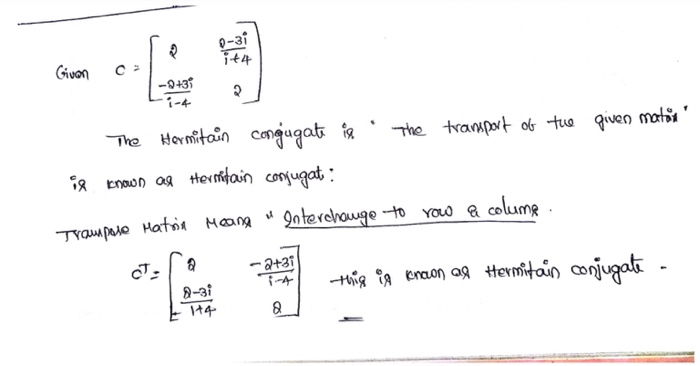 Given C = [ 2 2-3i/i+4
-2+3i/i-4 2 ]
The Hermitain conjugate is " The transport of the given matrix"
is known as Hermitain conjugat:
Transpose Matrix Means " Interchange to row & colums.
C^T = [ 2 -2+3i/i-4
2-3i/1+4 2 ] this is known as Hermitain conjugate -